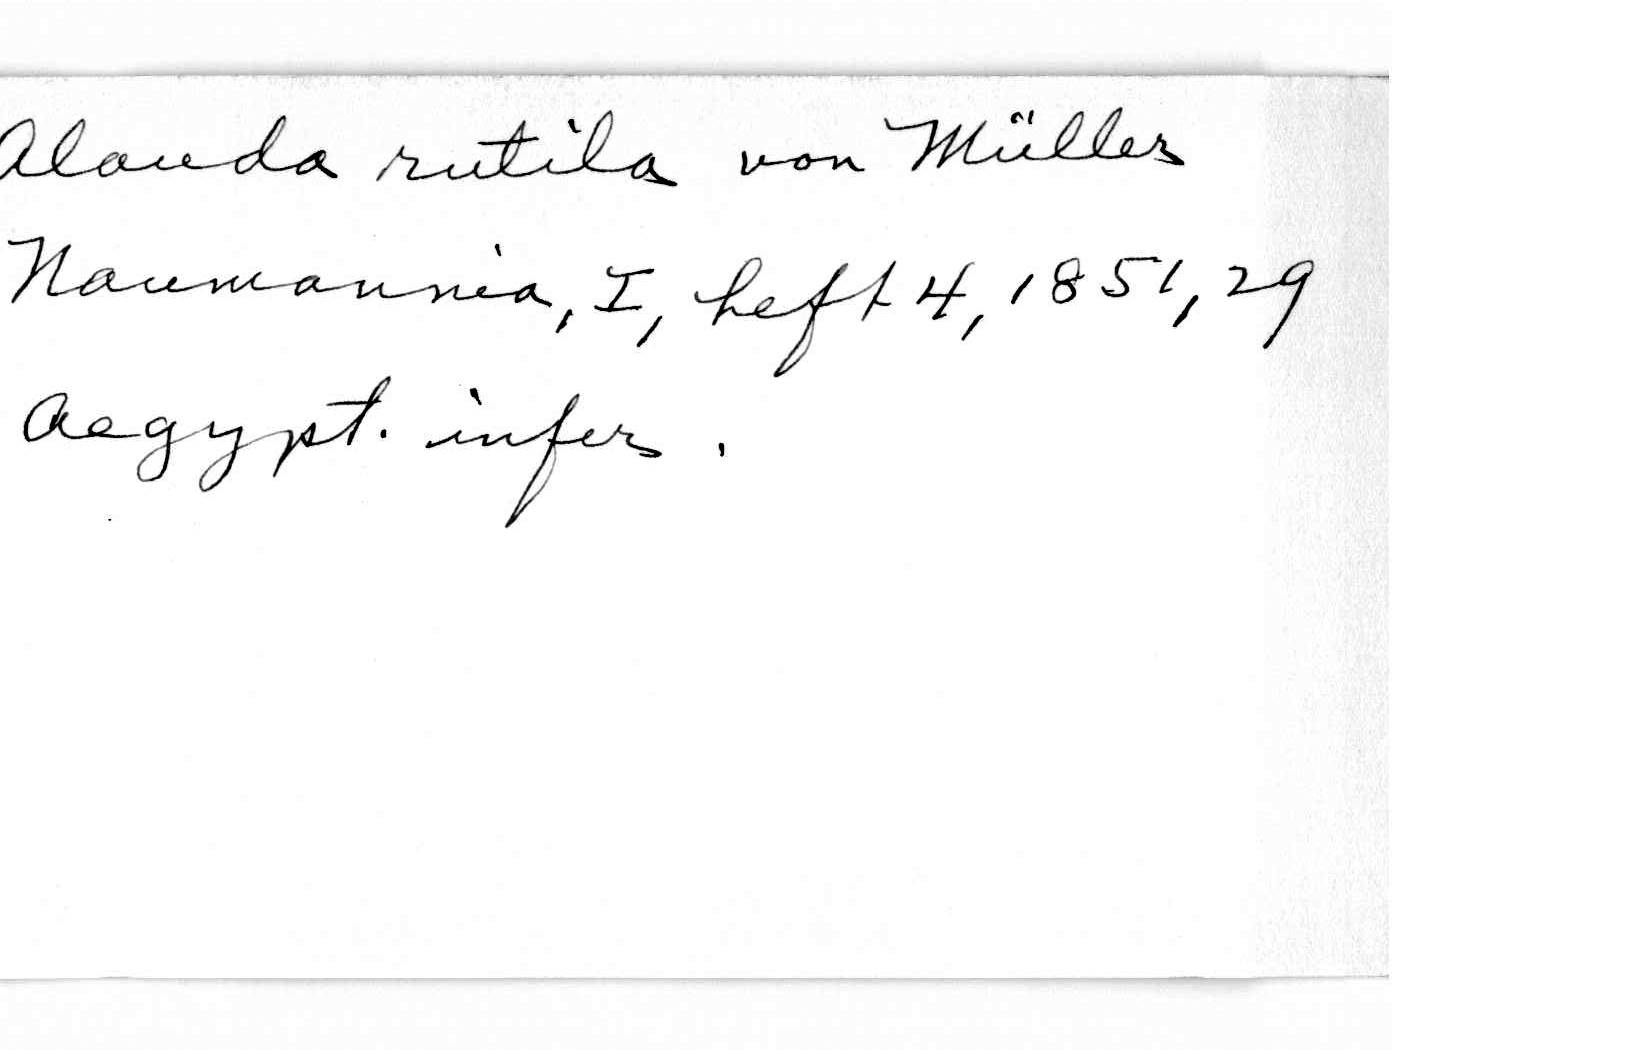 Alauda rutila von Müller
Naumannia, I, heft 4, 1851, 29
Aegypt. infer.